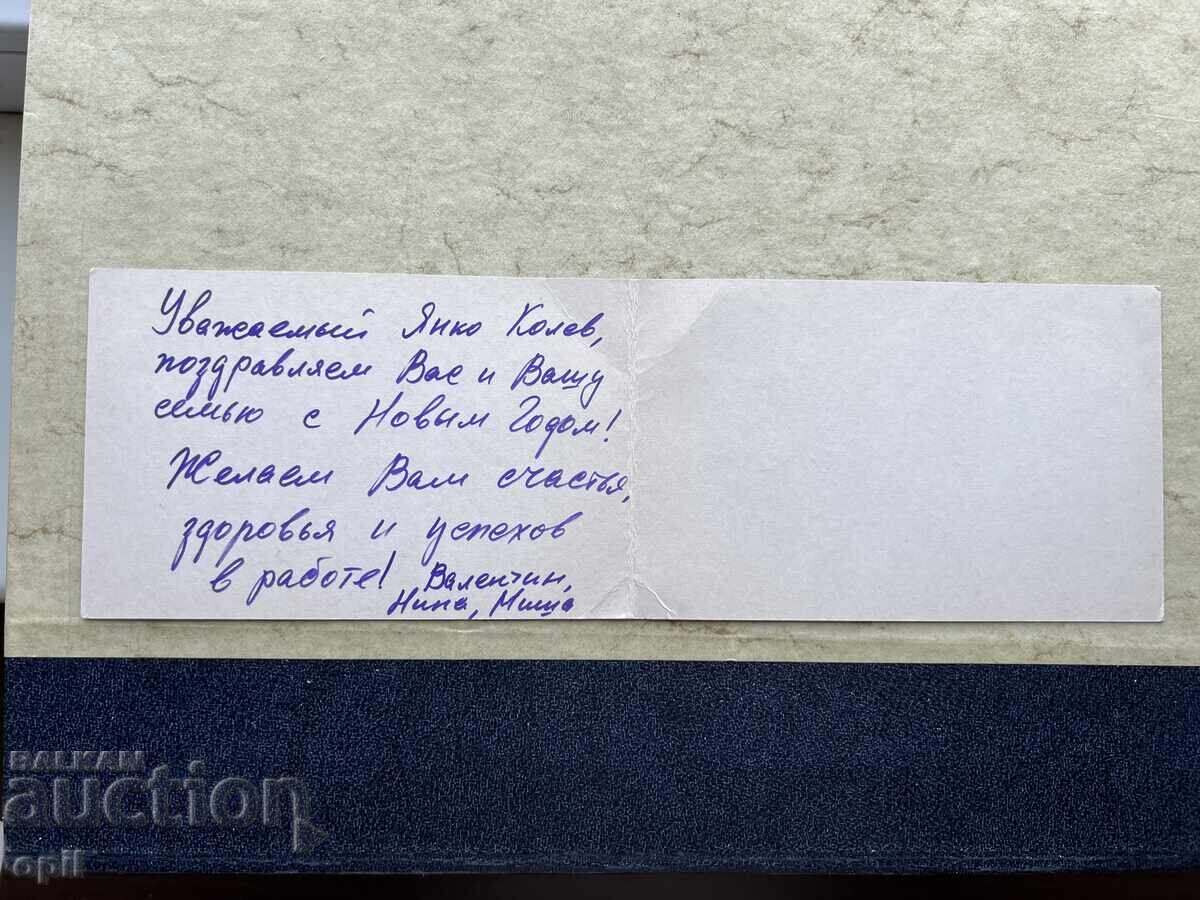 Уважаемый Янко Колев,
поздравляем Вас и Вашу
семью с Новым Годом!
Желаем Вам счастья,
здоровья и успехов
в работе! Валентин,
Нина, Миша
BALKAN
auction
opil